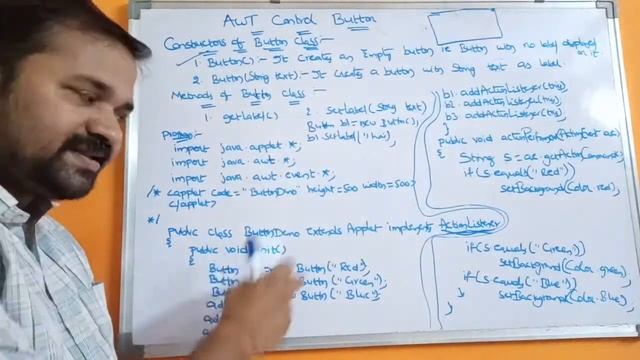 AWT Control Button
Constructors of Button Class:-
1. Button() :- It creates an Empty button ie Button with no label displayed on it.
2. Button(String text) :- It creates a button with String text as label.
Methods of Button class :-
1. getLabel() 2. setLabel(String text)
Button b1 = new Button();
b1.setLabel("
Program:-
import java.applet.*;
import java.awt.*;
import java.awt.event.*;
/* <applet code="ButtonDemo" height=500 width=500>
</applet>
*/
public class ButtonDemo extends Applet implements ActionListener
{
public void init()
{
Button Button("Red");
Button Button("Green");
Button("Blue");
b1.addActionListener(this);
b2.addActionListener(this);
b3.addActionListener(this);
}
public void actionPerformed(ActionEvent ae)
{
String s = ae.getActionCommand();
if(s.equals("Red"))
setBackground(Color.red);
if(s.equals("Green"))
setBackground(Color.green);
if(s.equals("Blue"))
setBackground(Color.Blue);
}
}